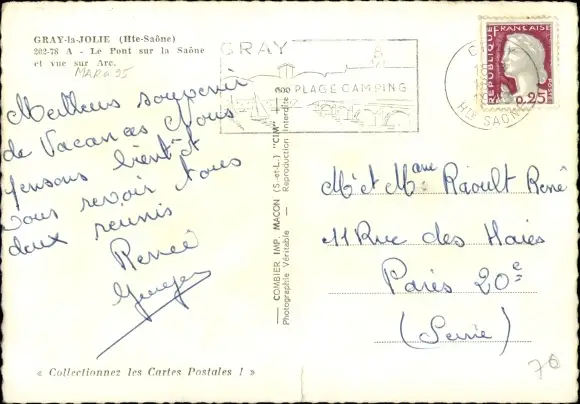 GRAY-la-JOLIE (Hte-Saône)
202-78 A - Le Pont sur la Saône
et vue sur Arc.
MARG 95
GRAY
PLAGE CAMPING
REPUBLIQUE FRANÇAISE
0,25
HTE SAÔNE
Meilleurs souvenir
de Vacances Nous
pensons bientôt
vous revoir tous
deux reunis
Renée
Georges
— COMBIER IMP. MACON (S-et-L.) "CIM" —
Photographie Véritable — Reproduction Interdite
Mr et Mme Raoult René
11 Rue des Haies
Paris 20e
(Seine)
70
« Collectionnez les Cartes Postales ! »